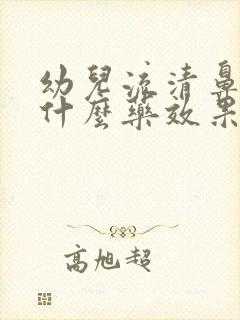 幼兒流清鼻
什麼藥效果
高旭超